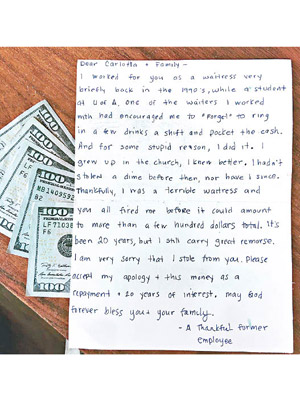 Dear Carlotta + Family -
I worked for you as a waitress very
briefly back in the 1990's, while a student
at U of A, one of the waiters I worked
with had encouraged me to "forget" to ring
in a few drinks a shift and pocket the cash.
And for some stupid reason, I did it. I
grew up in the church, I knew better. I hadn't
stolen a dime before then, nor have I since.
Thankfully, I was a terrible waitress and
you all fired me before it could amount
to more than a few hundred dollars total. It's
been 20 years, but I still carry great remorse.
I am very sorry that I stole from you. Please
accept my apology + this money as a
repayment + 20 years of interest. may God
forever bless you + your family.
- A Thankful former
employee
100
100
100
100
LF
F6
MB1409592
B2
LF7103
F6
100